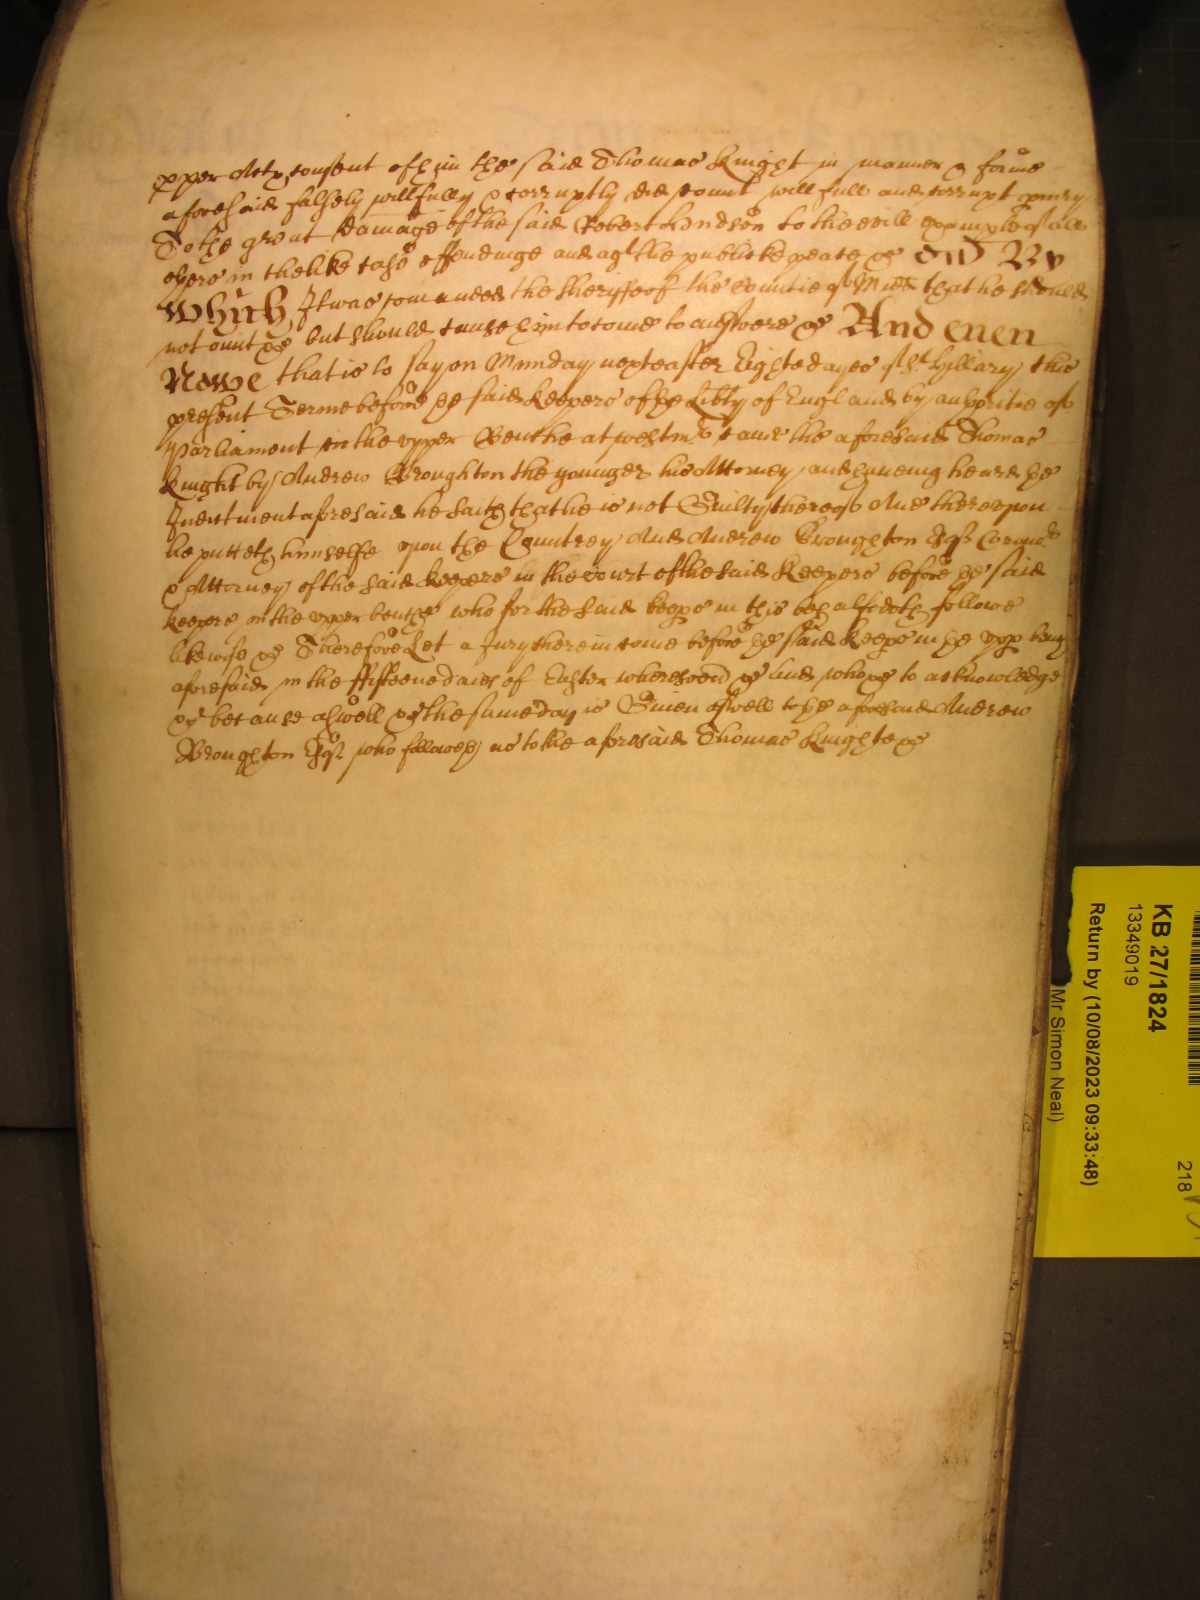 pper Act & consent of him the said Thomas Knight in manner & forme
aforesaid falsely willfully & corruptly did comitt willfull and corrupt priury
To the great damage of the said Robert Hindson to the evill example of all
others in the like case offendinge and agt the publicke peace &c OW By
Which It was comanded the Sheriffe of the Countie of Midd that he should
not omitt &c but should cause him to come to answere &c And even
Nowe that is to say on Munday next after Eight dayes of St Hillary this
present Terme before ye said Keepers of ye Libty of England by authoritie of
Parliament in the upper Benche at Westmr came the aforesaid Thomas
Knight by Andrew Broughton the younger his Attorney and haveing heard ye
Indictment aforesaid he saith that he is not Guilty thereof And thereupon
he putteth himselfe upon the Countrey And Andrew Broughton Esqr Coronor
& Attorney of the said Keepers in the Court of the said Keepers before ye said
Keepers in the upper benche who for the said keeps in this behalfe doth followe
likewise &c Therefore Let a Jury therein come before ye said Keeps in ye upp bench
aforesaid in the fifteene daies of Easter wheresoever &c And who &c to acknowledge
&c because aswell &c the same day is Given aswell to ye aforesaid Andrew
Broughton Esqr who followeth as to the aforesaid Thomas Knighte &c
KB 27/1824
13349019
Return by (10/08/2023 09:33:48)
Mr Simon Neal)
218